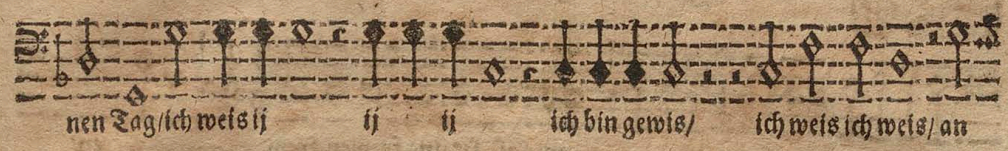 nen Tag/ich weis ij ij ij ich bin gewis/ ich weis ich weis/ an